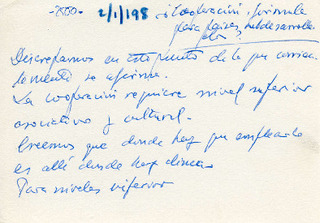 -2580- 2/1/198 ¿Cooperación, fórmula
para países subdesarrolla
dos?
Discrepamos en este punto de lo que corrien
temente se afirma.
La cooperación requiere nivel superior
asociativo y cultural.
Creemos que donde hay que emplearlo
es allí donde hay dinero.
Para niveles inferior